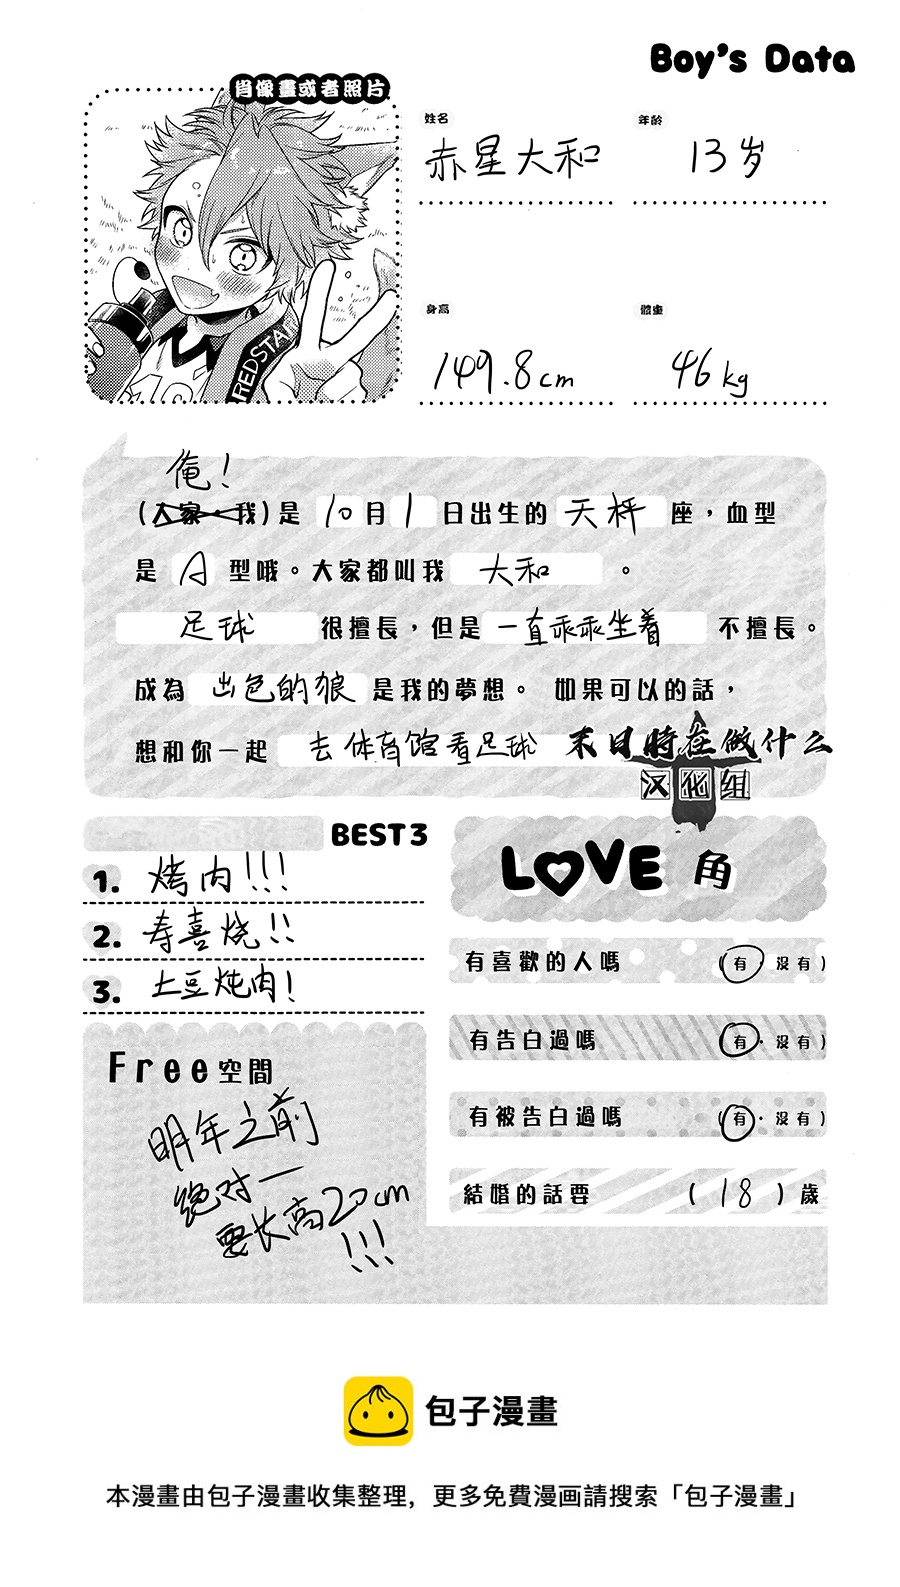 Boy's Data
肖像畫或者照片
姓名
年齡
赤星大和
13岁
身高
體重
149.8cm
46kg
俺!
(大家・我)是 10月1日出生的 天秤 座，血型
是 A 型哦。大家都叫我 大和 。
足球 很擅長，但是 一直乖乖坐着 不擅長。
成為 出色的狼 是我的夢想。 如果可以的話，
想和你一起 去体育馆看足球
末日時在做什么
汉化组
REDSTAR
BEST3
1. 烤肉!!!
2. 寿喜烧!!
3. 土豆炖肉!
LOVE 角
有喜歡的人嗎 (有・沒有)
有告白過嗎 (有・沒有)
有被告白過嗎 (有・沒有)
結婚的話要 (18)歲
Free空間
明年之前
绝对一
要长高20cm
!!!
包子漫畫
本漫畫由包子漫畫收集整理，更多免費漫画請搜索「包子漫畫」